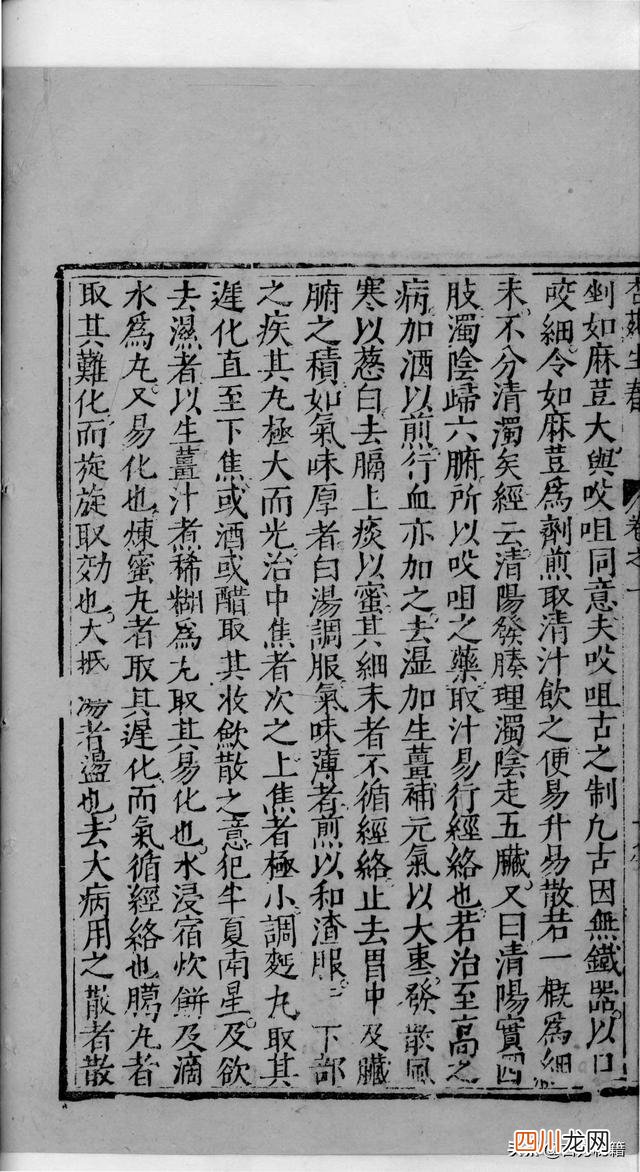 剉如麻荳大與㕮咀同意夫㕮咀古之制九古因無鐵器以口
㕮細令如麻荳爲劑煎取清汁飲之便易升易散若一概爲細
末不分清濁矣經云清陽發腠理濁陰走五臟又曰清陽實四
肢濁陰歸六腑所以㕮咀之藥取汁易行經絡也若治至高之
病加酒以煎行血亦加之去湿加生薑補元氣以大棗發散風
寒以葱白去膈上痰以蜜其細末者不循經絡止去胃中及臟
腑之積如氣味厚者白湯調服氣味薄者煎以和渣服下部
之疾其丸極大而光治中焦者次之上焦者極小調麪丸取其
遲化直至下焦或酒或醋取其收歛散之意犯半夏南星及欲
去濕者以生薑汁煮稀糊爲丸取其易化也水浸宿炊餅及滴
水爲丸又易化也煉蜜丸者取其遲化而氣循經絡也臈丸者
取其難化而旋旋取効也大抵湯者盪也去大病用之散者散
四川龙网